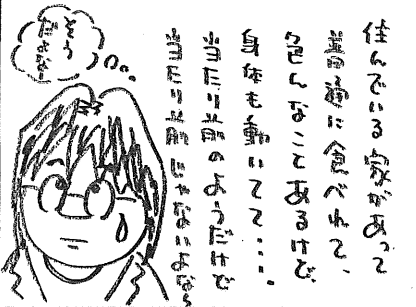 住んでいる家があって
普通に食べれて、
色んなことあるけど、
身体も動いてて・・・。
当たり前のようだけど
当たり前じゃないよなら
そう
だよな!